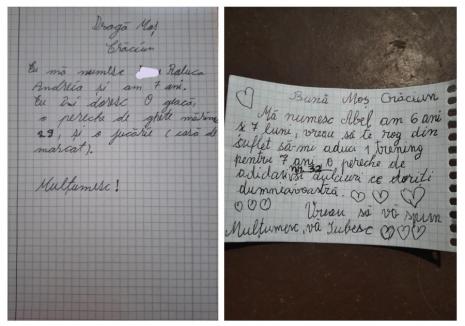 Dragă Moș
Crăciun
Eu mă numesc Raluca
Andreia și am 7 ani.
Eu îmi doresc O geacă,
o pereche de ghete mărime
29, și o jucărie (casă de
marcat).
Mulțumesc!
Bună Moș Crăciun
Mă numesc Abel am 6 ani
și 7 luni, vreau să te rog din
suflet să-mi aduci 1 trening
pentru 7 ani, o pereche de
adidași nr 32 și dulciuri ce doriți
dumneavoastră.
Vreau să vă spun
Mulțumesc, vă Iubesc